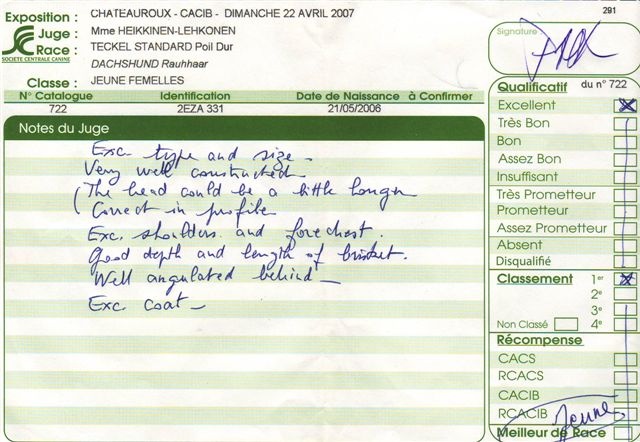 291
Exposition : CHATEAUROUX - CACIB - DIMANCHE 22 AVRIL 2007
Juge : Mme HEIKKINEN-LEHKONEN
Race : TECKEL STANDARD Poil Dur
SOCIÉTÉ CENTRALE CANINE DACHSHUND Rauhhaar
Classe : JEUNE FEMELLES
N° Catalogue Identification Date de Naissance à Confirmer
722 2EZA 331 21/05/2006
Notes du Juge
Exc. type and size.
Very well constructed
(The head could be a little longer
Correct in profile
Exc. shoulders and forechest.
Good depth and length of brisket.
Well angulated behind
Exc. coat
Signature :
Qualificatif du n° 722
Excellent X
Très Bon
Bon
Assez Bon
Insuffisant
Très Prometteur
Prometteur
Assez Prometteur
Absent
Disqualifié
Classement 1er X
2e
3e
Non Classé 4e
Récompense
CACS
RCACS
CACIB
RCACIB Jeune
Meilleur de Race